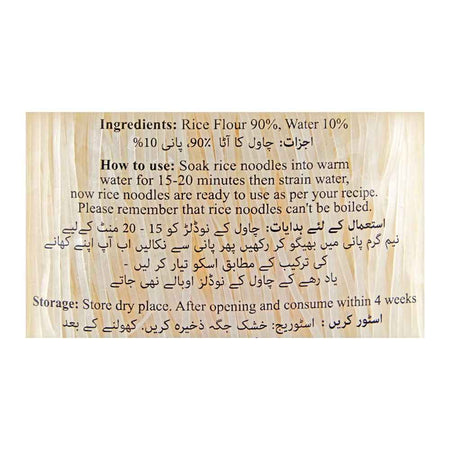 Ingredients: Rice Flour 90%, Water 10%
اجزات: چاول کا آٹا ٪90، پانی 10%
How to use: Soak rice noodles into warm
water for 15-20 minutes then strain water,
now rice noodles are ready to use as per your recipe.
Please remember that rice noodles can't be boiled.
استعمال کے لئے ہدایات: چاول کے نوڈلز کو 15 - 20 منٹ کےلیے
نیم گرم پانی میں بھیگو کر رکھیں پھر پانی سے نکالیں اب آپ اپنے کھانے
کی ترکیب کے مطابق اسکو تیار کر لیں -
یاد رهے کے چاول کے نوڈلز اوبالے نھی جاتے
Storage: Store dry place. After opening and consume within 4 weeks
اسٹور کریں : اسٹوریج: خشک جگہ ذخیرہ کریں. کھولنے کے بعد